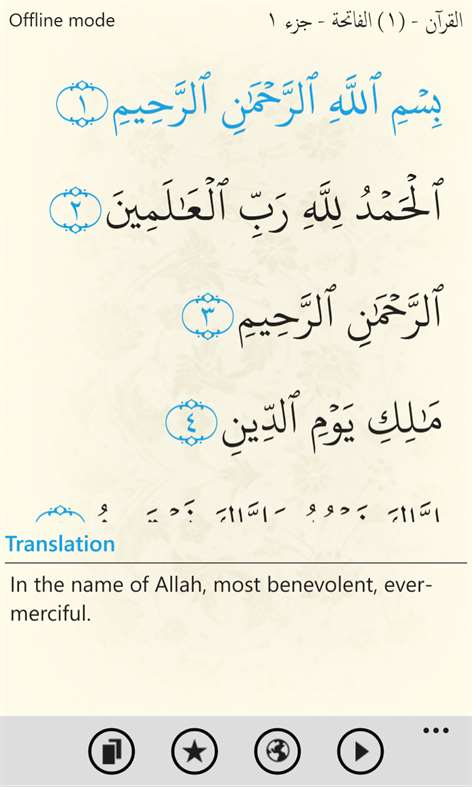 Offline mode
القرآن - (١) الفاتحة - جزء ١
بِسْمِ ٱللَّهِ ٱلرَّحْمَٰنِ ٱلرَّحِيمِ ١
ٱلْحَمْدُ لِلَّهِ رَبِّ ٱلْعَٰلَمِينَ ٢
ٱلرَّحْمَٰنِ ٱلرَّحِيمِ ٣
مَٰلِكِ يَوْمِ ٱلدِّينِ ٤
Translation
In the name of Allah, most benevolent, ever-
merciful.